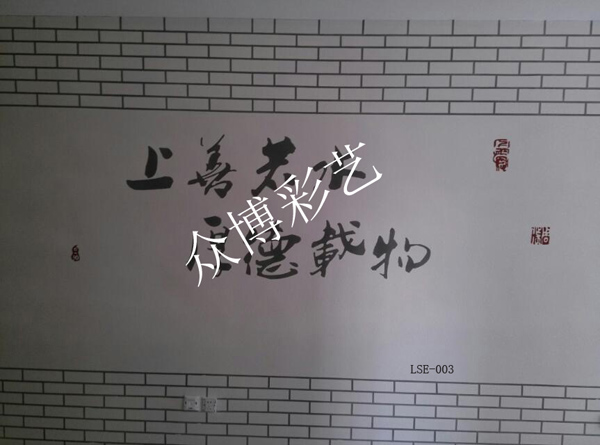 上善若水
厚德載物
众博彩艺
LSE-003